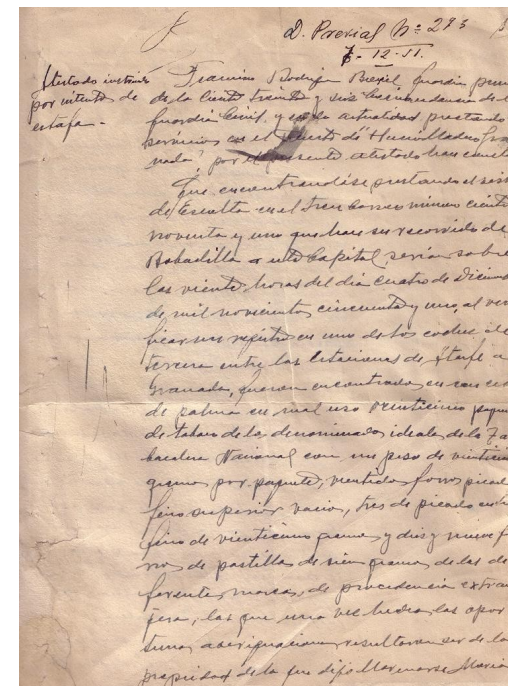 D. Previal Nº 293
7-12-51.
Atestado instruido
por intento de
estafa.-
Rodrigo Guardia
de la Ciento treinta y seis Comandancia de l
Guardia Civil, y en la actualidad prestando
servicios en el puesto de "Humilladero Gra
nada", por el presente atestado hace const
Que encontrándose prestando el ser
de Escolta en el tren correo número ciento
noventa y uno que hace su recorrido de
Bobadilla a esta Capital, serían sobre
las veinte horas del día cuatro de Diciem
de mil novecientos cincuenta y uno, al ver
ficar un registro en uno de los coches de
tercera entre las Estaciones de Atarfe a
Granada, fueron encontrados en una ces
de palma en mal uso veinticinco paque
de tabaco de los denominados ideales de la Ta
bacalera Nacional con un peso de veinticin
gramos por paquete, veintidos forros picad
fino superior vacios, tres de picado entre
fino de veinticinco gramos y diez y nueve f
rros de pastillas de cien gramos de las di
ferentes marcas, de procedencia extran
jera, las que una vez hechas las opor
tunas averiguaciones resultaron ser de la
propiedad de la que dijo llamarse Maria